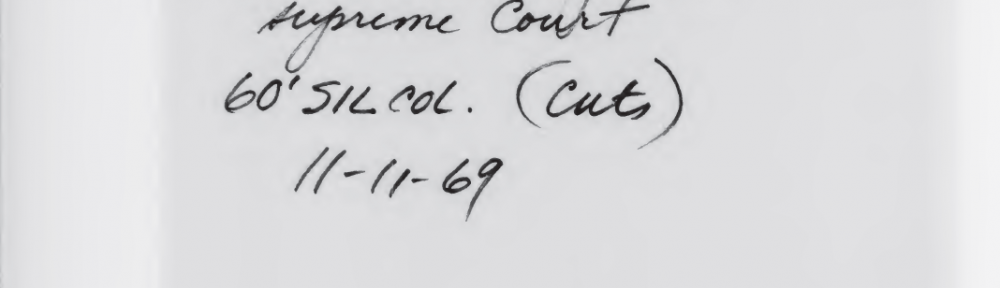 supreme Court
60' SIL COL. (Cuts)
11-11-69